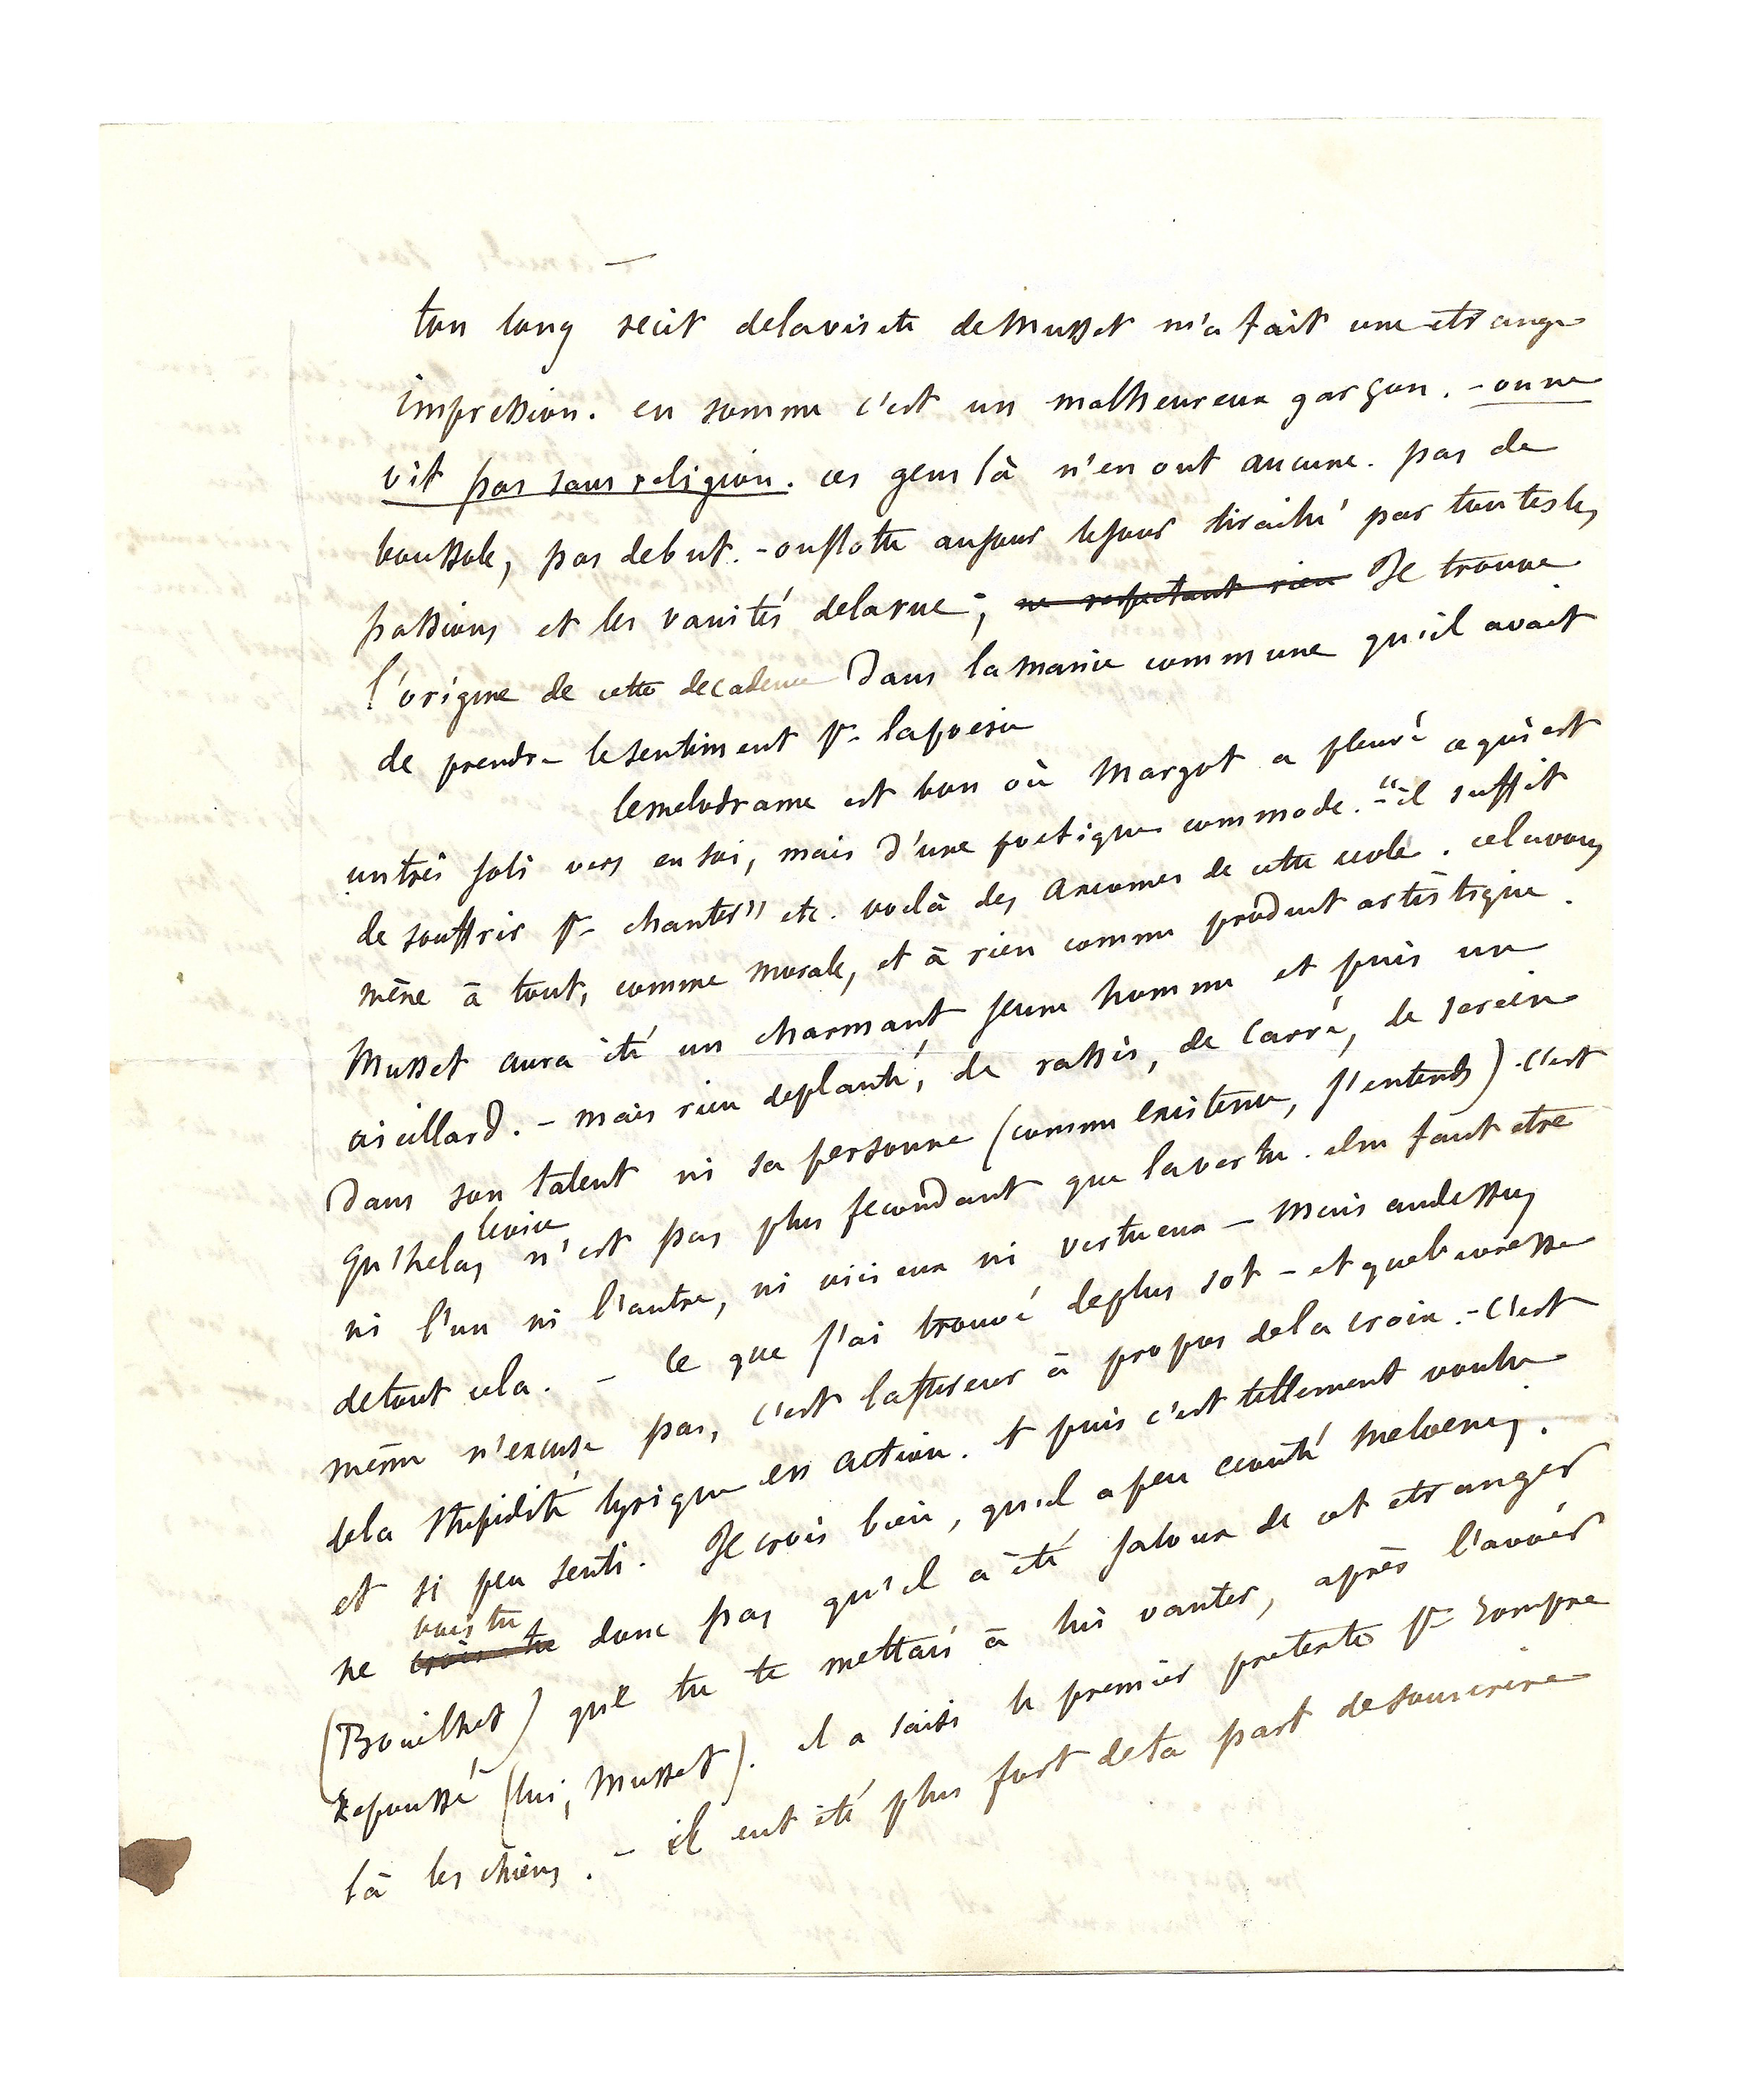 ton long recit delavisite de Musset m'a fait une etrange
impression. en somme c'est un malheureux garçon. - on ne
vit pas sans religion. ces gens là n'en ont aucune. pas de
boussole, pas de but. - on flotte au jour le jour tiraillé par toutes les
passions et les vanités delarue; ne respectant rien Je trouve
l'origine de cette decadence dans la manie commune qu'il avait
de prendre le sentiment pr la poesie
le melodrame est bon où Margot a pleuré ce qui est
un très joli vers en soi, mais d'une poetique commode. - "il suffit
de souffrir pr chanter" etc. voilà des axiomes de cette ecole. cela vous
mène à tout, comme morale, et à rien comme produit artistique.
Musset aura été un charmant jeune homme et puis un
vieillard. - mais rien de planté, de rassis, de carré, de serein
dans son talent ni sa personne (comme existence, j'entends) - c'est
qu'helas le vice n'est pas plus fecondant que la vertu. il ne faut etre
ni l'un ni l'autre, ni vicieux ni vertueux - mais audessus
de tout cela. - ce que j'ai trouvé de plus sot - et que l'ivresse
même n'excuse pas, c'est la fureur à propos de la croix. - c'est
de la stupidité lyrique en action. et puis c'est tellement voulu
et si peu senti. Je crois bien, qu'il a peu ecouté Melaenis.
ne crois-tu vois tu donc pas qu'il a été jaloux de cet etranger
(Bouilhet) que tu te mettais à lui vanter, après l'avoir
repoussé (lui, Musset). il a saisi le premier pretexte pr rompre
là les chiens. - il eut été plus fort de ta part de souscrire